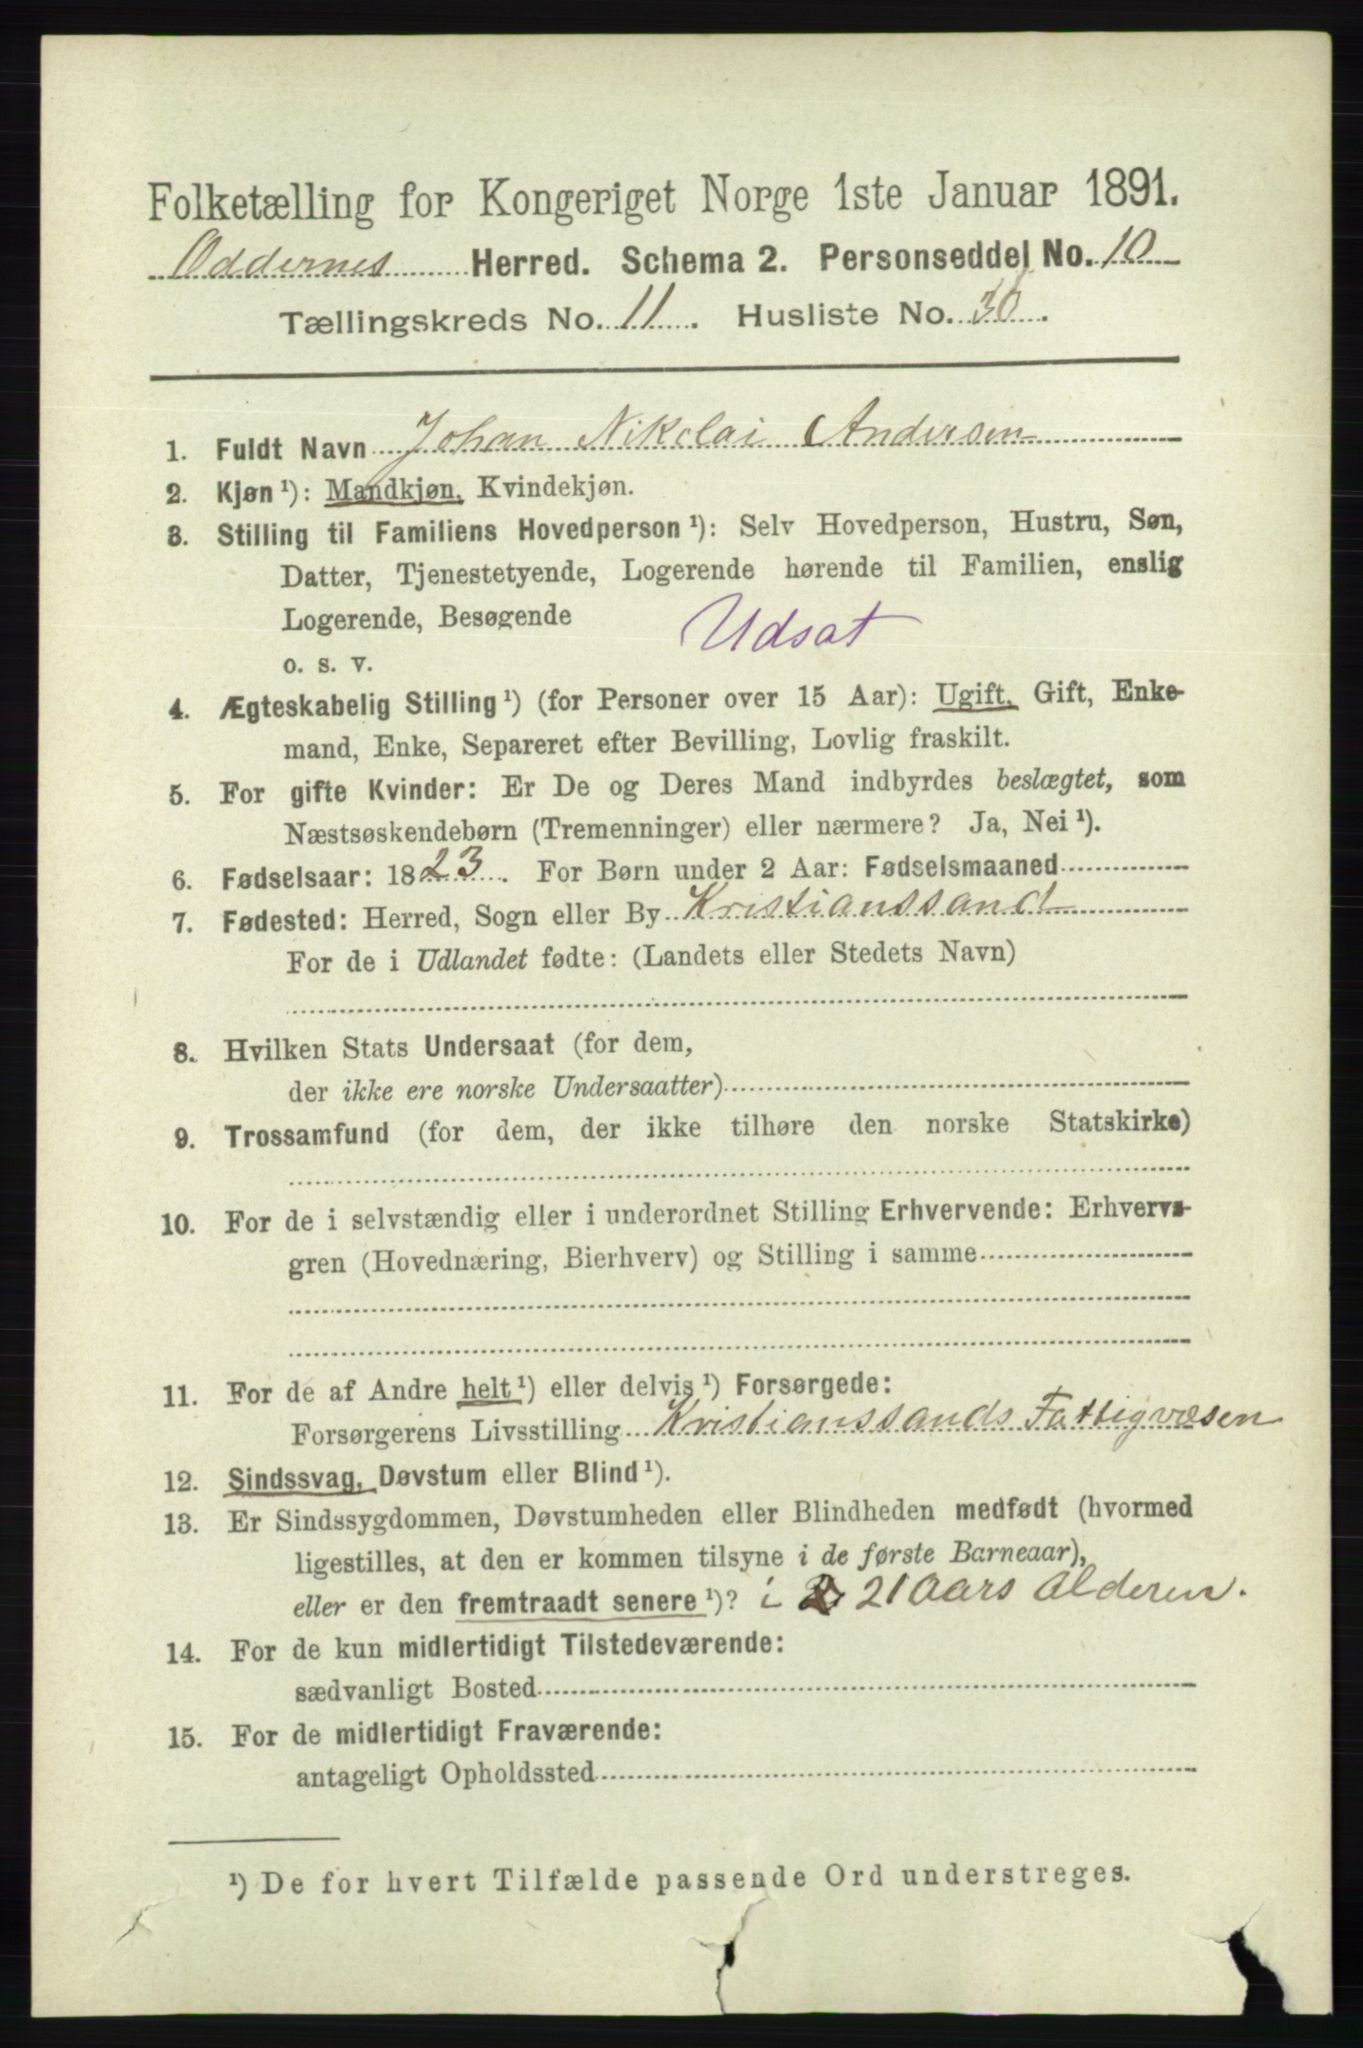 Folketælling for Kongeriget Norge 1ste Januar 1891.
Oddernes Herred. Schema 2. Personseddel No. 10
Tællingskreds No. 11. Husliste No. 30.
1. Fuldt Navn Johan Nikolai Andersen
2. Kjøn ¹): Mandkjøn, Kvindekjøn.
3. Stilling til Familiens Hovedperson ¹): Selv Hovedperson, Hustru, Søn,
Datter, Tjenestetyende, Logerende hørende til Familien, enslig
Logerende, Besøgende
Udsat
o. s. v.
4. Ægteskabelig Stilling ¹) (for Personer over 15 Aar): Ugift, Gift, Enke-
mand, Enke, Separeret efter Bevilling, Lovlig fraskilt.
5. For gifte Kvinder: Er De og Deres Mand indbyrdes beslægtet, som
Næstsøskendebørn (Tremenninger) eller nærmere? Ja, Nei ¹).
6. Fødselsaar: 1823. For Børn under 2 Aar: Fødselsmaaned
7. Fødested: Herred, Sogn eller By Kristianssand
For de i Udlandet fødte: (Landets eller Stedets Navn)
8. Hvilken Stats Undersaat (for dem,
der ikke ere norske Undersaatter)
9. Trossamfund (for dem, der ikke tilhøre den norske Statskirke)
10. For de i selvstændig eller i underordnet Stilling Erhvervende: Erhvervs-
gren (Hovednæring, Bierhverv) og Stilling i samme
11. For de af Andre helt ¹) eller delvis ¹) Forsørgede:
Forsørgerens Livsstilling Kristianssands Fattigvæsen
12. Sindssvag, Døvstum eller Blind ¹).
13. Er Sindssygdommen, Døvstumheden eller Blindheden medfødt (hvormed
ligestilles, at den er kommen tilsyne i de første Barneaar),
eller er den fremtraadt senere ¹)? i 21 Aars Alderen.
14. For de kun midlertidigt Tilstedeværende:
sædvanligt Bosted
15. For de midlertidigt Fraværende:
antageligt Opholdssted
¹) De for hvert Tilfælde passende Ord understreges.